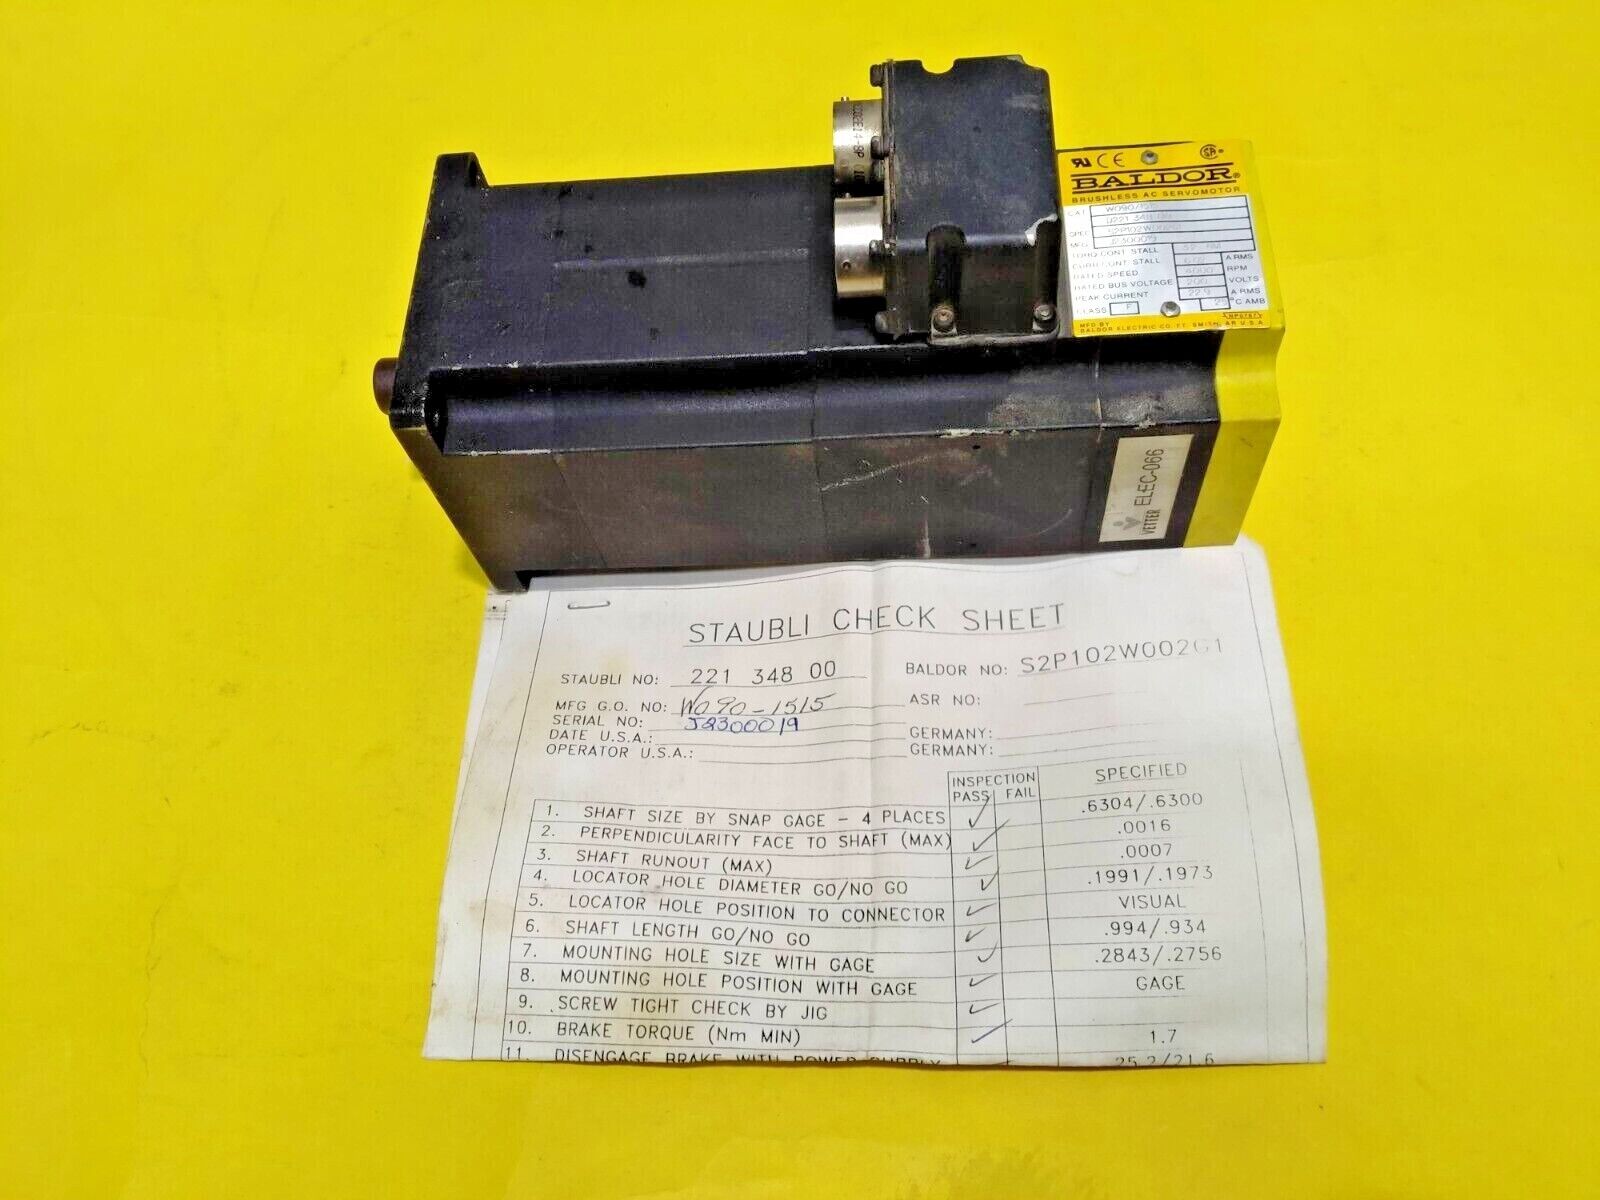 BALDOR®
BRUSHLESS AC SERVOMOTOR
CAT.
SPEC.
MFG. J2300019
TORQ CONT. STALL NM
CURR CONT. STALL A RMS
RATED SPEED 4000 RPM
RATED BUS VOLTAGE VOLTS
PEAK CURRENT 22.9 A RMS
CLASS F 25 °C AMB
MFD BY
BALDOR ELECTRIC CO. FT. SMITH, AR U.S.A.
VETTER ELEC-066
STAUBLI CHECK SHEET
STAUBLI NO: 221 348 00 BALDOR NO: S2P102W002G1
MFG G.O. NO: W090-1515 ASR NO:
SERIAL NO: J2300019
DATE U.S.A.: GERMANY:
OPERATOR U.S.A.: GERMANY:
INSPECTION SPECIFIED
PASS FAIL
1. SHAFT SIZE BY SNAP GAGE - 4 PLACES ✓ .6304/.6300
2. PERPENDICULARITY FACE TO SHAFT (MAX) ✓ .0016
3. SHAFT RUNOUT (MAX) ✓ .0007
4. LOCATOR HOLE DIAMETER GO/NO GO ✓ .1991/.1973
5. LOCATOR HOLE POSITION TO CONNECTOR ✓ VISUAL
6. SHAFT LENGTH GO/NO GO ✓ .994/.934
7. MOUNTING HOLE SIZE WITH GAGE ✓ .2843/.2756
8. MOUNTING HOLE POSITION WITH GAGE ✓ GAGE
9. SCREW TIGHT CHECK BY JIG ✓
10. BRAKE TORQUE (Nm MIN) ✓ 1.7
11. DISENGAGE BRAKE WITH POWER SUPPLY 25.2/21.6